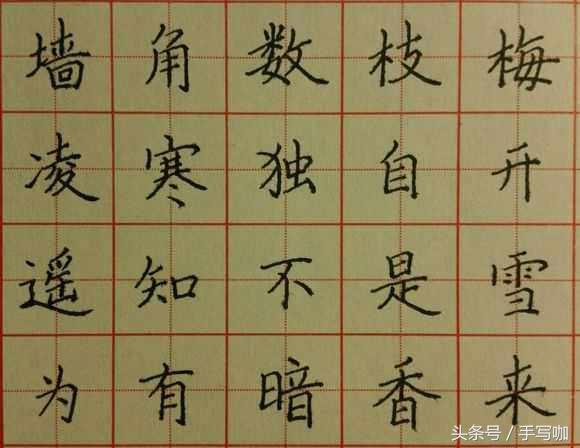 墙角数枝梅
凌寒独自开
遥知不是雪
为有暗香来
头条号 / 手写咖